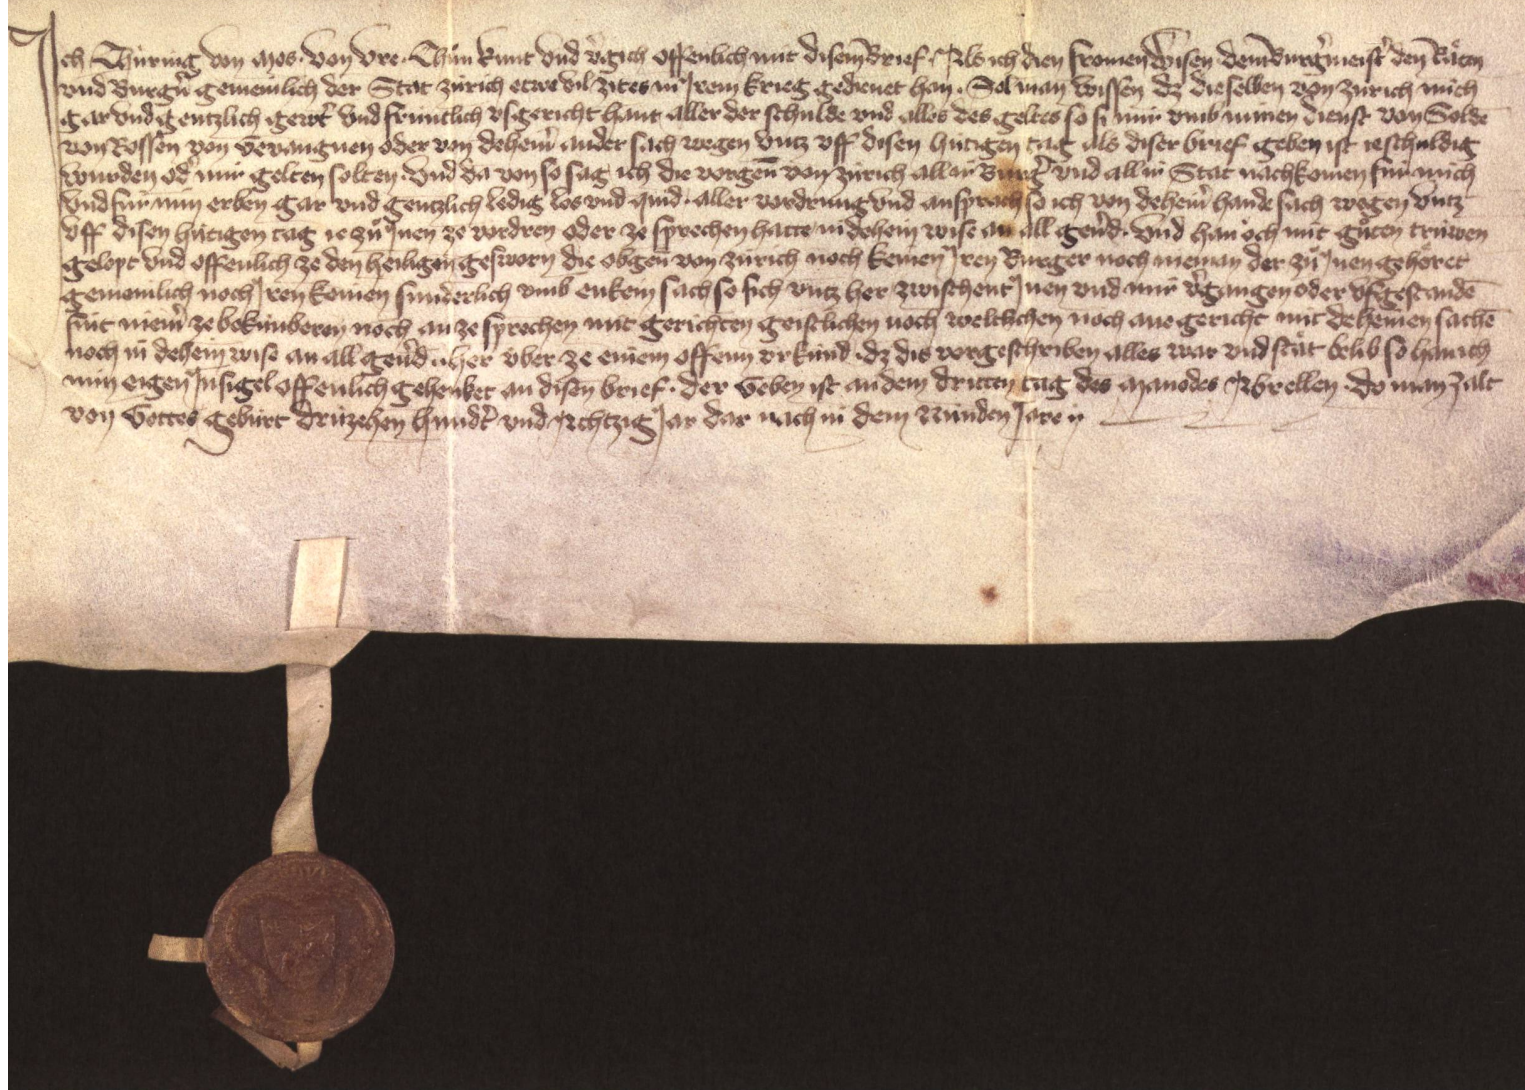 Ich Thúring von Mos von Vre Thůn kunt vnd v̉gich offenlich mit disem brief Als ich dien fromen wisen dem burgmeist̉ den Räten
vnd Burgn̉ gemeinlich der Stat Zúrich etwe vil zites in Jrem krieg gedienet han. Sol man wissen dz dieselben von Zúrich mich
gar vnd gentzlich gewt̉ vnd fruntlich vsgericht hant aller der schulde vnd alles des geltes so si mir vmb minen dienst von Solde
von Rossen von gevangnen oder von dehein̉ ander sach wegen vntz vff disen hútigen tag als diser brief geben ist ie schuldig
wurden od̉ mir gelten solten. Vnd da von so sag ich die vorgen̄ von Zúrich all ir Burg̉ vnd all ir Stat nachkomen fúr mich
vnd fúr min erben gar vnd gentzlich ledig los vnd quid aller vordrung vnd ansprach so ich von dehein̉ hande sach wegen vntz
vff disen hútigen tag ie zů Jnen ze vordren oder ze sprechen hatte in dehein wise an all gev̉d. Vnd han och mit gůten trúwen
gelopt vnd offenlich ze den heiligen gesworn die obgen̄ von Zúrich noch keinen Jren Burger noch nieman der zů Jnen gehöret
gemeinlich noch Jren keinen sunderlich vmb enkein sach so sich vntz her zwischent Jnen vnd mir v̉gangen oder vfgestanden̄
sint niem̉ ze bekúmberen noch an ze sprechen mit gerichten geistlichen noch weltlichen noch ane gericht mit deheinen sachē
noch in dehein wise an all gev̉d. her vber ze einem offenn vrkúnd dz dis vorgeschriben alles war vnd stät belib so han ich
min eigen Jnsigel offenlich gehenket an disen brief. der Geben ist an dem dritten tag des Manodes Abrellen do man zalt
von Gottes gebúrt drúzehen hundt̉ vnd Achtzig Jar dar nach in dem Núnden Jare